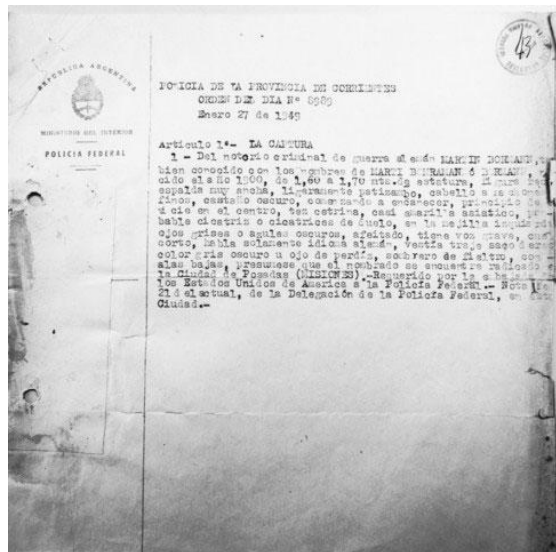 REPUBLICA ARGENTINA
MINISTERIO DEL INTERIOR
POLICIA FEDERAL
43
POLICIA DE LA PROVINCIA DE CORRIENTES
ORDEN DEL DIA Nº 8989
Enero 27 de 1949
Articulo 1º- LA CAPTURA
1 - Del notorio criminal de guerra alemán MARTIN BORMANN,
bien conocido con los nombres de MARTI
cido el año 1900, de 1,60 a 1,70 mts. de estatura, figura
espalda muy ancha, ligeramente patizambo, cabello
finos, castaño oscuro, comenzando a encanecer, principio de
vicie en el centro, tez cetrina, casi amarilla asiatico, pro
bable cicatriz o cicatrices de duelo, en la mejilla
ojos grises o azules oscuros, afeitado, tiene voz grave,
corto, habla solamente idioma alemán, vestía traje saco
color gris oscuro u ojo de perdiz, sombrero de fieltro, con
alas bajas, presumese que el nombrado se encuentre radicado
la Ciudad de Posadas (MISIONES).-Requerido por la
los Estados Unidos de America a la Policía Federal.- Nota
21 del actual, de la Delegación de la Policía Federal, en
Ciudad.-